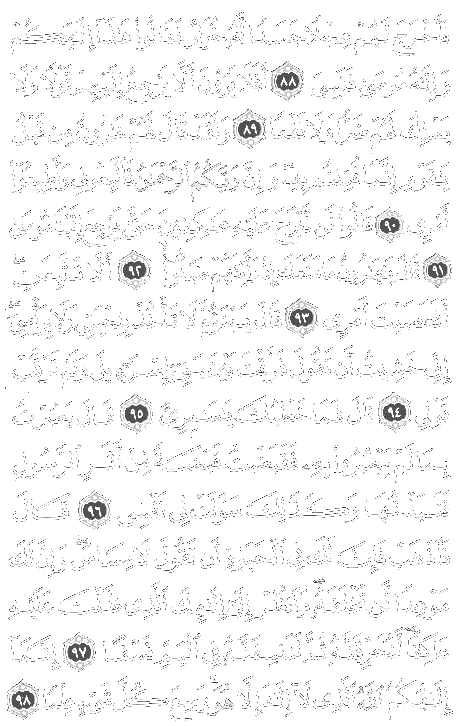 فَأَخْرَجَ لَهُمْ عِجْلًا جَسَدًا لَّهُ خُوَارٌ فَقَالُوا هَٰذَا إِلَٰهُكُمْ
وَإِلَٰهُ مُوسَىٰ فَنَسِيَ ﴿٨٨﴾ أَفَلَا يَرَوْنَ أَلَّا يَرْجِعُ إِلَيْهِمْ قَوْلًا وَلَا
يَمْلِكُ لَهُمْ ضَرًّا وَلَا نَفْعًا ﴿٨٩﴾ وَلَقَدْ قَالَ لَهُمْ هَارُونُ مِن قَبْلُ
يَا قَوْمِ إِنَّمَا فُتِنتُم بِهِ وَإِنَّ رَبَّكُمُ الرَّحْمَٰنُ فَاتَّبِعُونِي وَأَطِيعُوا
أَمْرِي ﴿٩٠﴾ قَالُوا لَن نَّبْرَحَ عَلَيْهِ عَاكِفِينَ حَتَّىٰ يَرْجِعَ إِلَيْنَا مُوسَىٰ
﴿٩١﴾ قَالَ يَا هَارُونُ مَا مَنَعَكَ إِذْ رَأَيْتَهُمْ ضَلُّوا ﴿٩٢﴾ أَلَّا تَتَّبِعَنِ
أَفَعَصَيْتَ أَمْرِي ﴿٩٣﴾ قَالَ يَبْنَؤُمَّ لَا تَأْخُذْ بِلِحْيَتِي وَلَا بِرَأْسِي
إِنِّي خَشِيتُ أَن تَقُولَ فَرَّقْتَ بَيْنَ بَنِي إِسْرَائِيلَ وَلَمْ تَرْقُبْ
قَوْلِي ﴿٩٤﴾ قَالَ فَمَا خَطْبُكَ يَا سَامِرِيُّ ﴿٩٥﴾ قَالَ بَصُرْتُ
بِمَا لَمْ يَبْصُرُوا بِهِ فَقَبَضْتُ قَبْضَةً مِّنْ أَثَرِ الرَّسُولِ
فَنَبَذْتُهَا وَكَذَٰلِكَ سَوَّلَتْ لِي نَفْسِي ﴿٩٦﴾ قَالَ
فَاذْهَبْ فَإِنَّ لَكَ فِي الْحَيَاةِ أَن تَقُولَ لَا مِسَاسَ وَإِنَّ لَكَ
مَوْعِدًا لَّن تُخْلَفَهُ وَانظُرْ إِلَىٰ إِلَٰهِكَ الَّذِي ظَلْتَ عَلَيْهِ
عَاكِفًا لَّنُحَرِّقَنَّهُ ثُمَّ لَنَنسِفَنَّهُ فِي الْيَمِّ نَسْفًا ﴿٩٧﴾ إِنَّمَا
إِلَٰهُكُمُ اللَّهُ الَّذِي لَا إِلَٰهَ إِلَّا هُوَ وَسِعَ كُلَّ شَيْءٍ عِلْمًا ﴿٩٨﴾